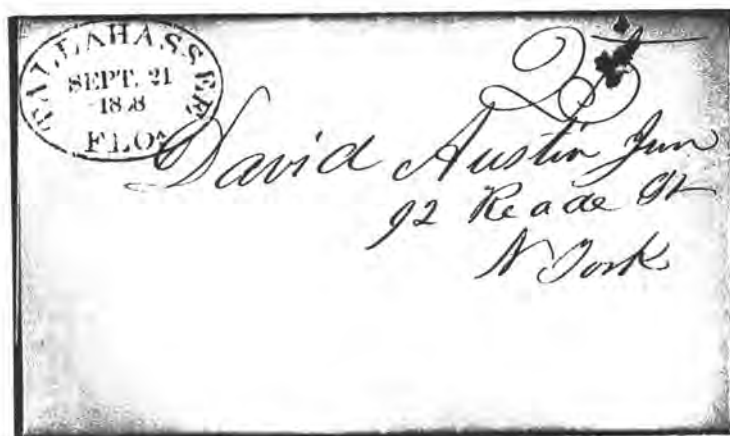 TALLAHASSEE
SEPT. 21
FLOA
25
David Austin Jun
92 Reade St
N York